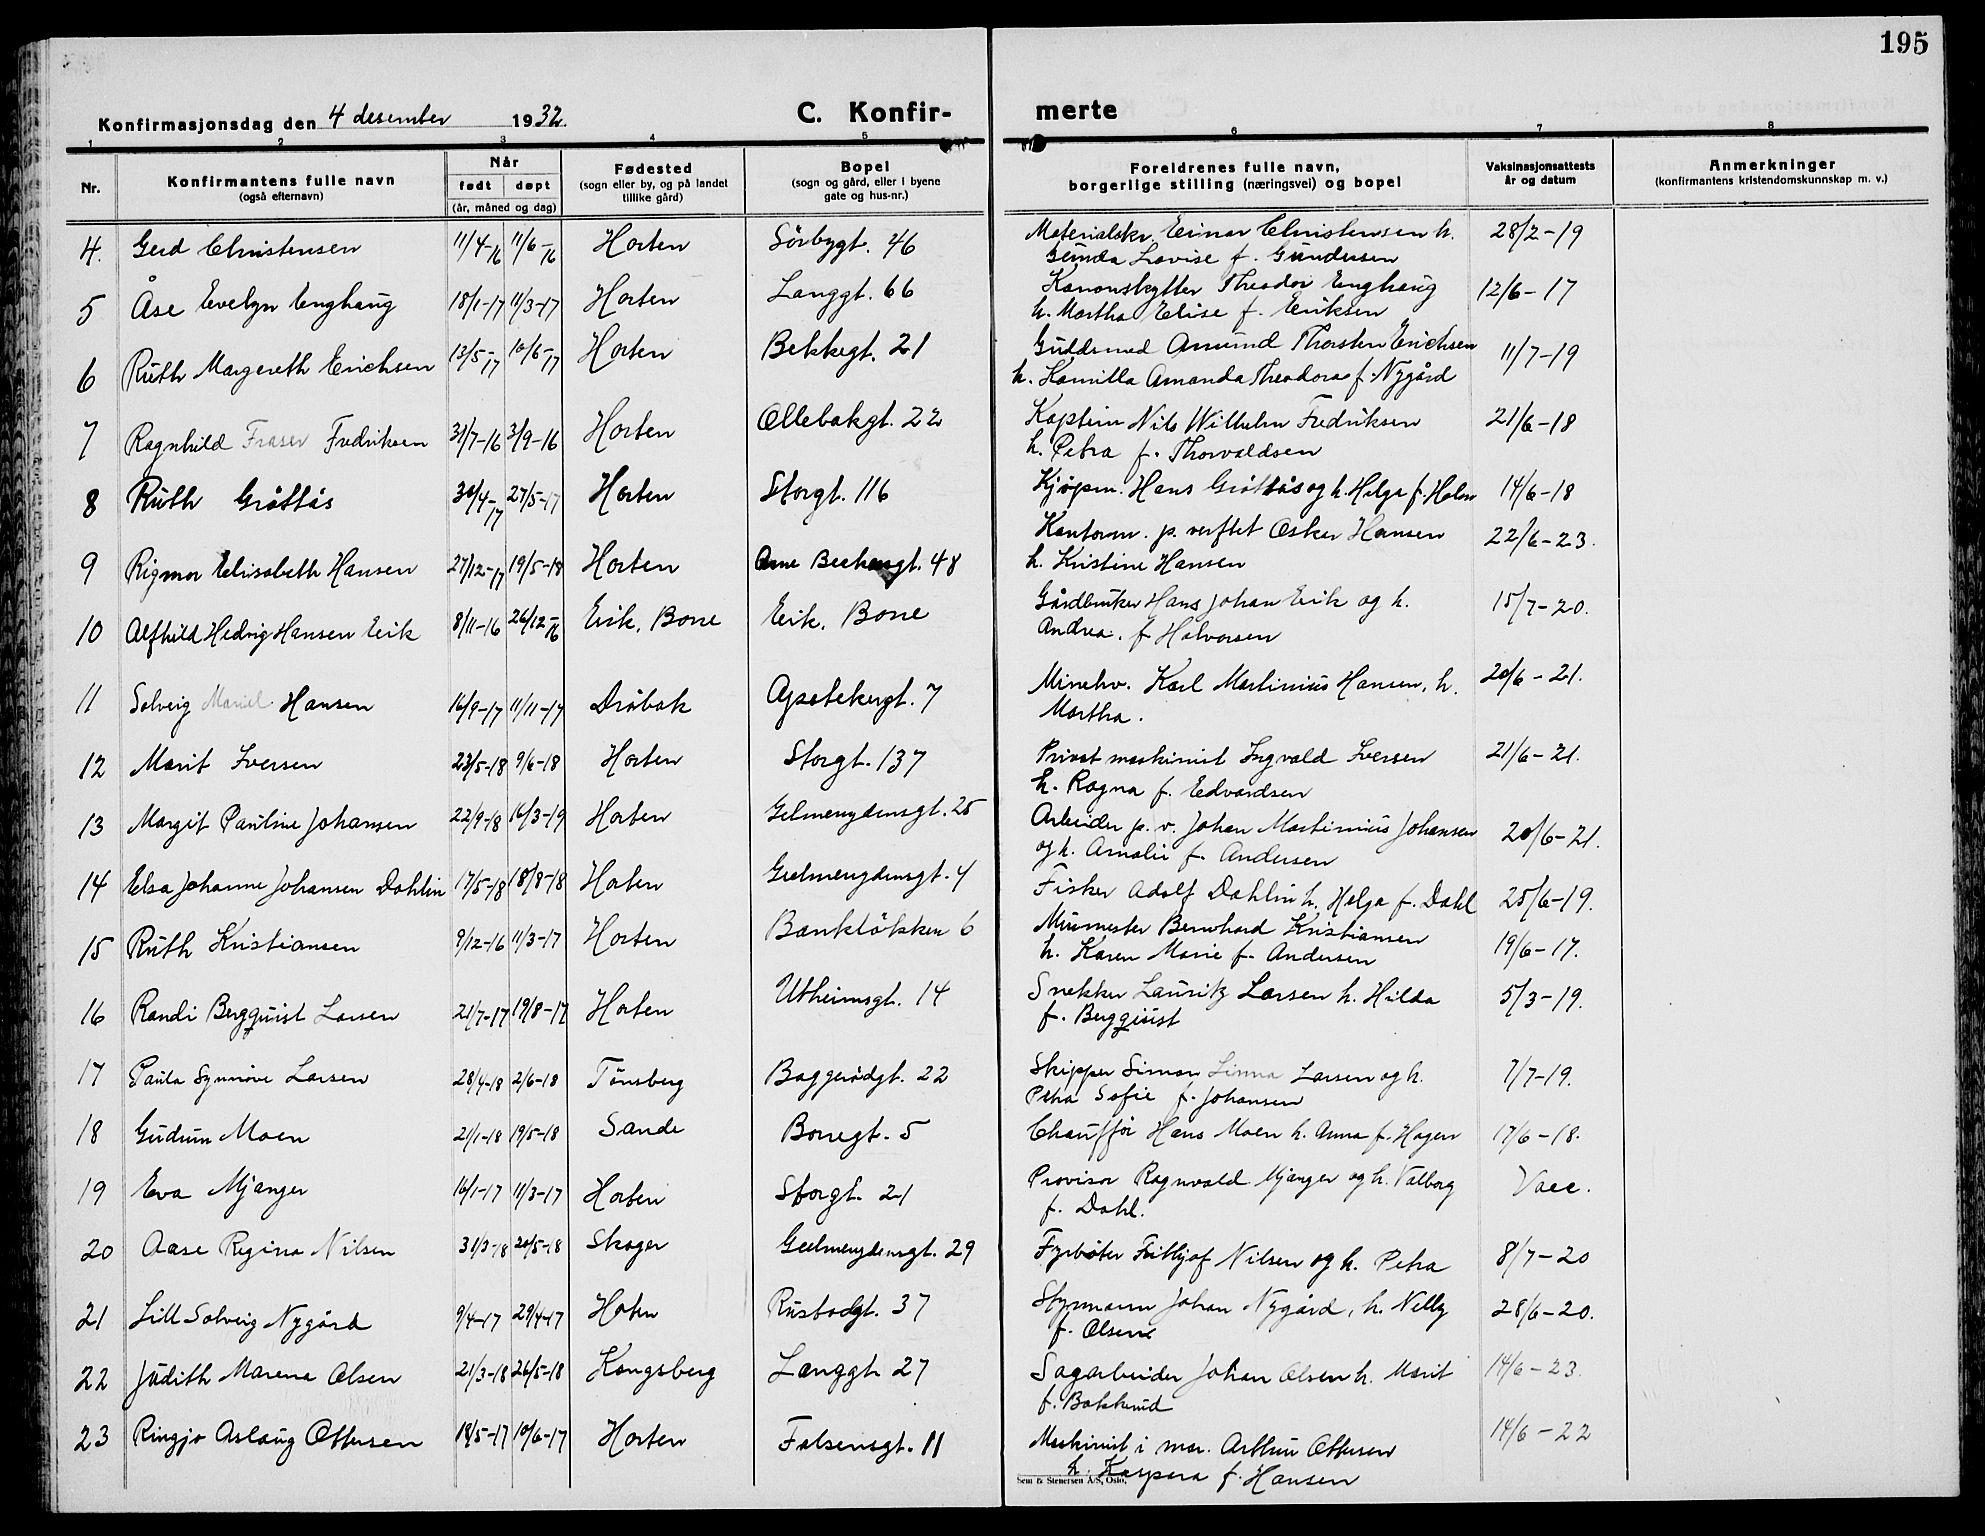 195
Konfirmasjonsdag den 4 desember 1932.
C. Konfir-
merte
1 2 3 4 5 6 7 8
Nr.
Konfirmantens fulle navn
(også efternavn)
Når
født døpt
(år, måned og dag)
Fødested
(sogn eller by, og på landet
tillike gård)
Bopel
(sogn og gård, eller i byene
gate og hus-nr.)
Foreldrenes fulle navn,
borgerlige stilling (næringsvei) og bopel
Vaksinasjonsattests
år og datum
Anmerkninger
(konfirmantens kristendomskunnskap m. v.)
4. Gerd Christensen 11/4-16 11/6-16 Horten Sörbygt. 46 Materialskr. Einar Christensen h. 28/2-19
Gunda Lovise f. Gundersen
5 Åse Evelyn Enghaug 18/1-17 11/3-17 Horten Langgt. 66 Kanonskytter Theodor Enghaug 12/6-17
h. Martha Elise f. Eriksen
6 Ruth Margereth Erichsen 13/5-17 10/6-17 Horten Bekkegt. 21 Amund Thorsten Erichsen 11/7-19
h. Kamilla Amanda Theodora f. Nygård
7 Ragnhild Fraser Fredriksen 31/7-16 3/9-16 Horten Ollebakgt. 22 Kaptein Nils Wilhelm Fredriksen 21/6-18
h. Petra f. Thorvaldsen
8 Ruth Gröttås 30/4-17 27/5-17 Horten Storgt. 116 Kjøpm. Hans Gröttås og h. Helga f. Holm 14/6-18
9 Rigmor Elisabeth Hansen 27/12-17 19/5-18 Horten Arne gt. 48 Kontorm. p. verftet Oskar Hansen 22/6-23.
h. Kristine Hansen
10 Alfhild Hedvig Hansen Eeik 8/11-16 26/12-16 Eeik, Borre Eeik, Borre Gårdbruker Hans Johan Eeik og h. 15/7-20.
Andrea. f Halvorsen
11 Solveig Hansen 16/9-17 11/11-17 Dröbak Apotekergt. 7 Minehv. Karl Martinius Hansen, h. 20/6-21.
Martha.
12 Marit Iversen 23/5-18 9/6-18 Horten Storgt. 137 Privat maskinist Ingvald Iversen 21/6-21.
h. Ragna f. Edvardsen
13 Margit Pauline Johansen 22/9-18 16/3-19 Horten Gelmeuydensgt. 25 Arbeider p. v. Johan Martinius Johansen 20/6-21.
og h. Amalie f. Andersen
14 Elsa Johanne Johansen Dahlin 17/5-18 18/8-18 Horten Geelmeuydensgt. 4 Fisker Adolf Dahlin h. Helga f. Dahl 25/6-19.
15 Ruth Kristiansen 9/12-16 11/3-17 Horten Bankløkken 6 Murmester Bernhard Kristiansen 19/6-17.
h. Karen Marie f. Andersen
16 Randi Bergquist Larsen 21/7-17 19/8-17 Horten Utheimsgt. 14 Snekker Lauritz Larsen h. Hilda 5/3-19.
f. Bergquist
17 Paula Synnøve Larsen 28/4-18 2/6-18 Tønsberg Baggerødgt. 22 Skipper Simon Linna Larsen og h. 7/7-19.
Petra Sofie f. Johansen
18 Gudrun Moen 21/1-18 19/5-18 Sande Borregt. 5 Chauffør Hans Moen h. Anna f. Hagen 17/6-18.
19 Eva Mjanger 16/1-17 11/3-17 Horten Storgt. 21 Provisor Ragnvald Mjanger og h. Valborg Vacc.
f. Dahl.
20 Aase Regina Nilsen 31/3-18 20/5-18 Skoger Geelmeydensgt. 29 Fyrbøter Frithjof Nilsen og h. Petra 8/7-20
21 Lill Solveig Nygård 9/4-17 29/4-17 Horten Rustadgt. 37 Styrmann Johan Nygård, h. Nelly 28/6-20.
f. Olsen
22 Judith Marena Olsen 21/3-18 26/5-18 Kongsberg Langgt. 27 Sagarbeider Johan Olsen h. Marit 14/6-23.
f. Bakkerud
23 Ringjo Aslaug Ottersen 18/5-17 10/6-17 Horten Falsensgt. 11 Maskinist i mar. Arthur Ottersen 14/6-22
h. Kaspara f. Hansen
Sem & Stenersen A/S, Oslo.